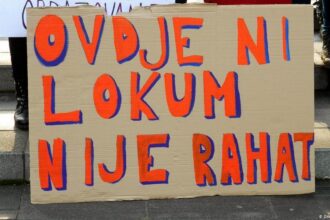 OBRAZOVAN
OVDJE NI
LOKUM
NIJE RAHAT